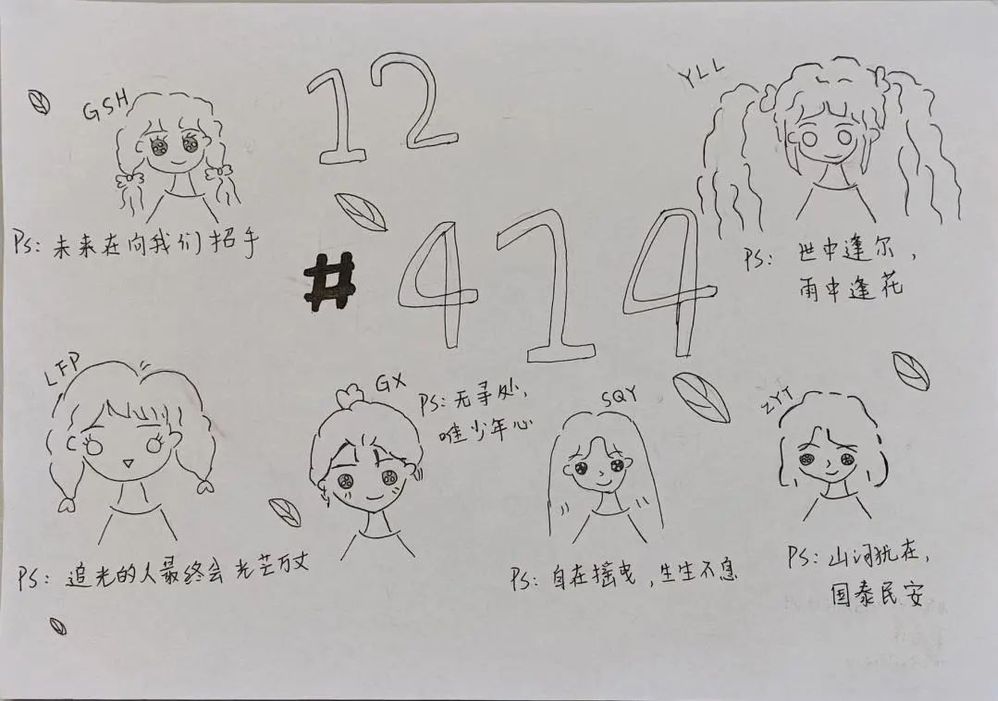 GSH
Ps: 未来在向我们招手
12
#414
YLL
Ps: 世中逢尔,
雨中逢花
LFP
Ps: 追光的人最终会光芒万丈
GX
Ps: 无寻处,
唯少年心
SQY
Ps: 自在摇曳,生生不息
ZYT
Ps: 山河犹在,
国泰民安